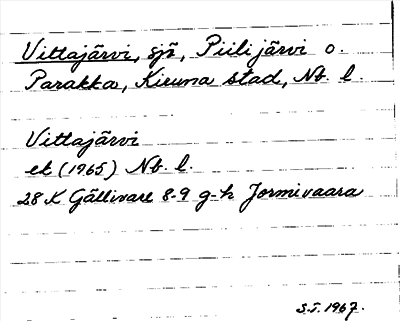 Vittajärvi, sjö, Piilijärvi o.
Parakka, Kiruna stad, Nb. l.
Vittajärvi
ek (1965) Nb. l.
28 K Gällivare 8-9 g-h Jormivaara
S.I. 1967.